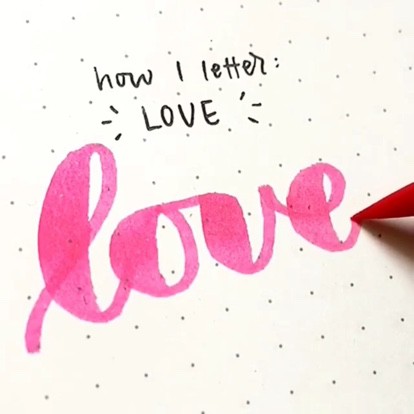 how I letter:
LOVE
love